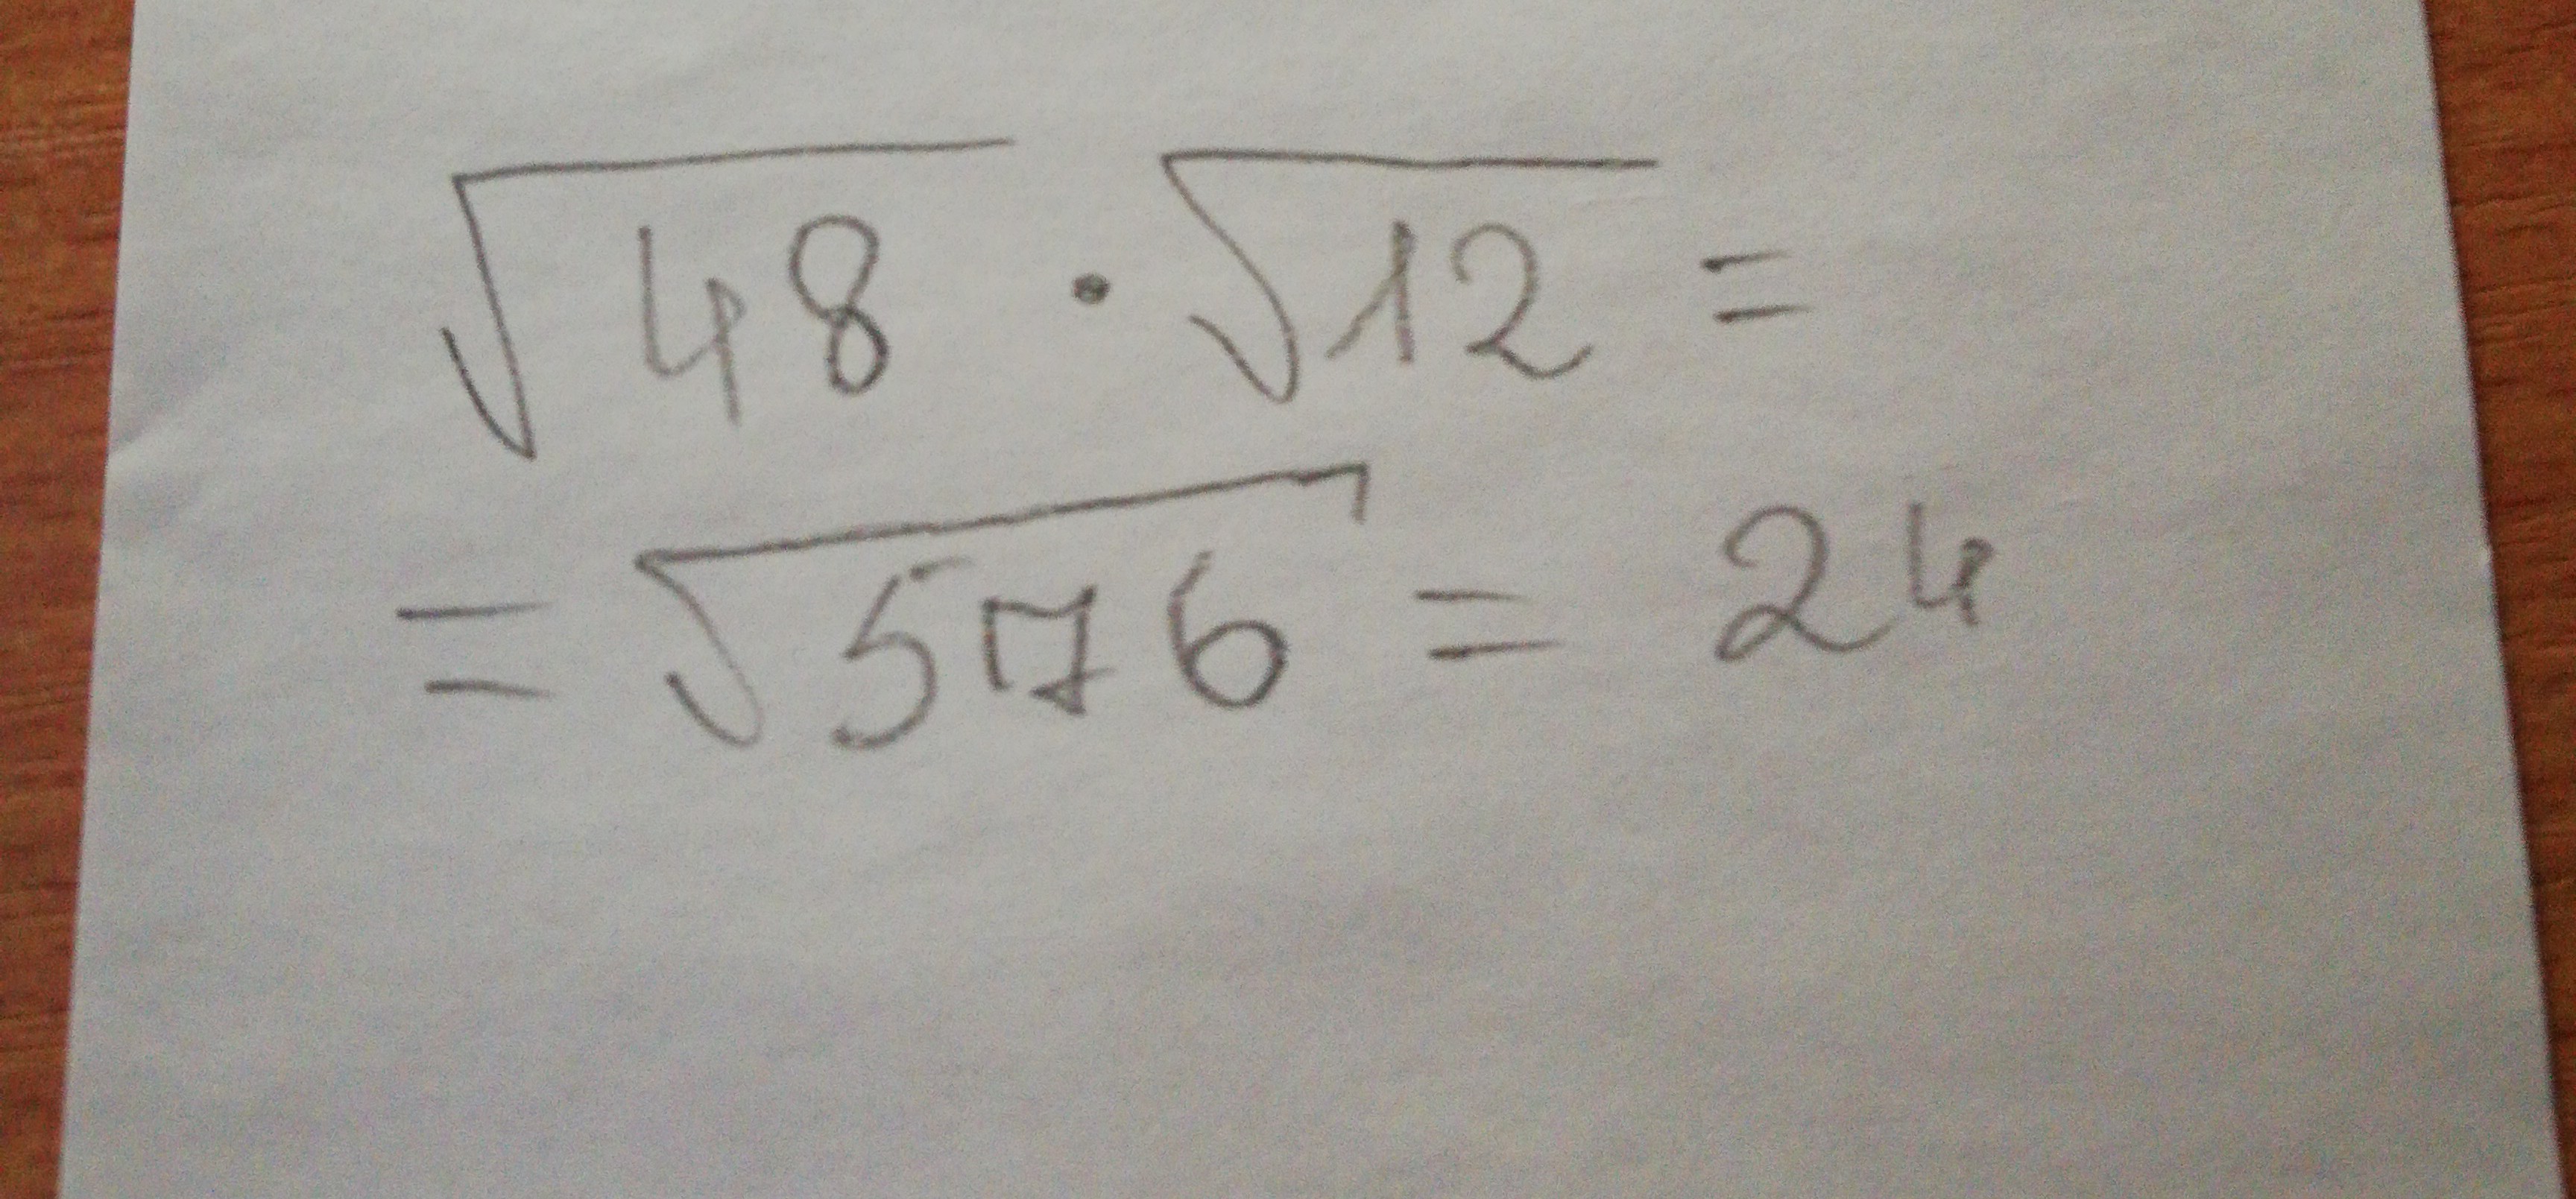 √48 · √12 =
= √576 = 24